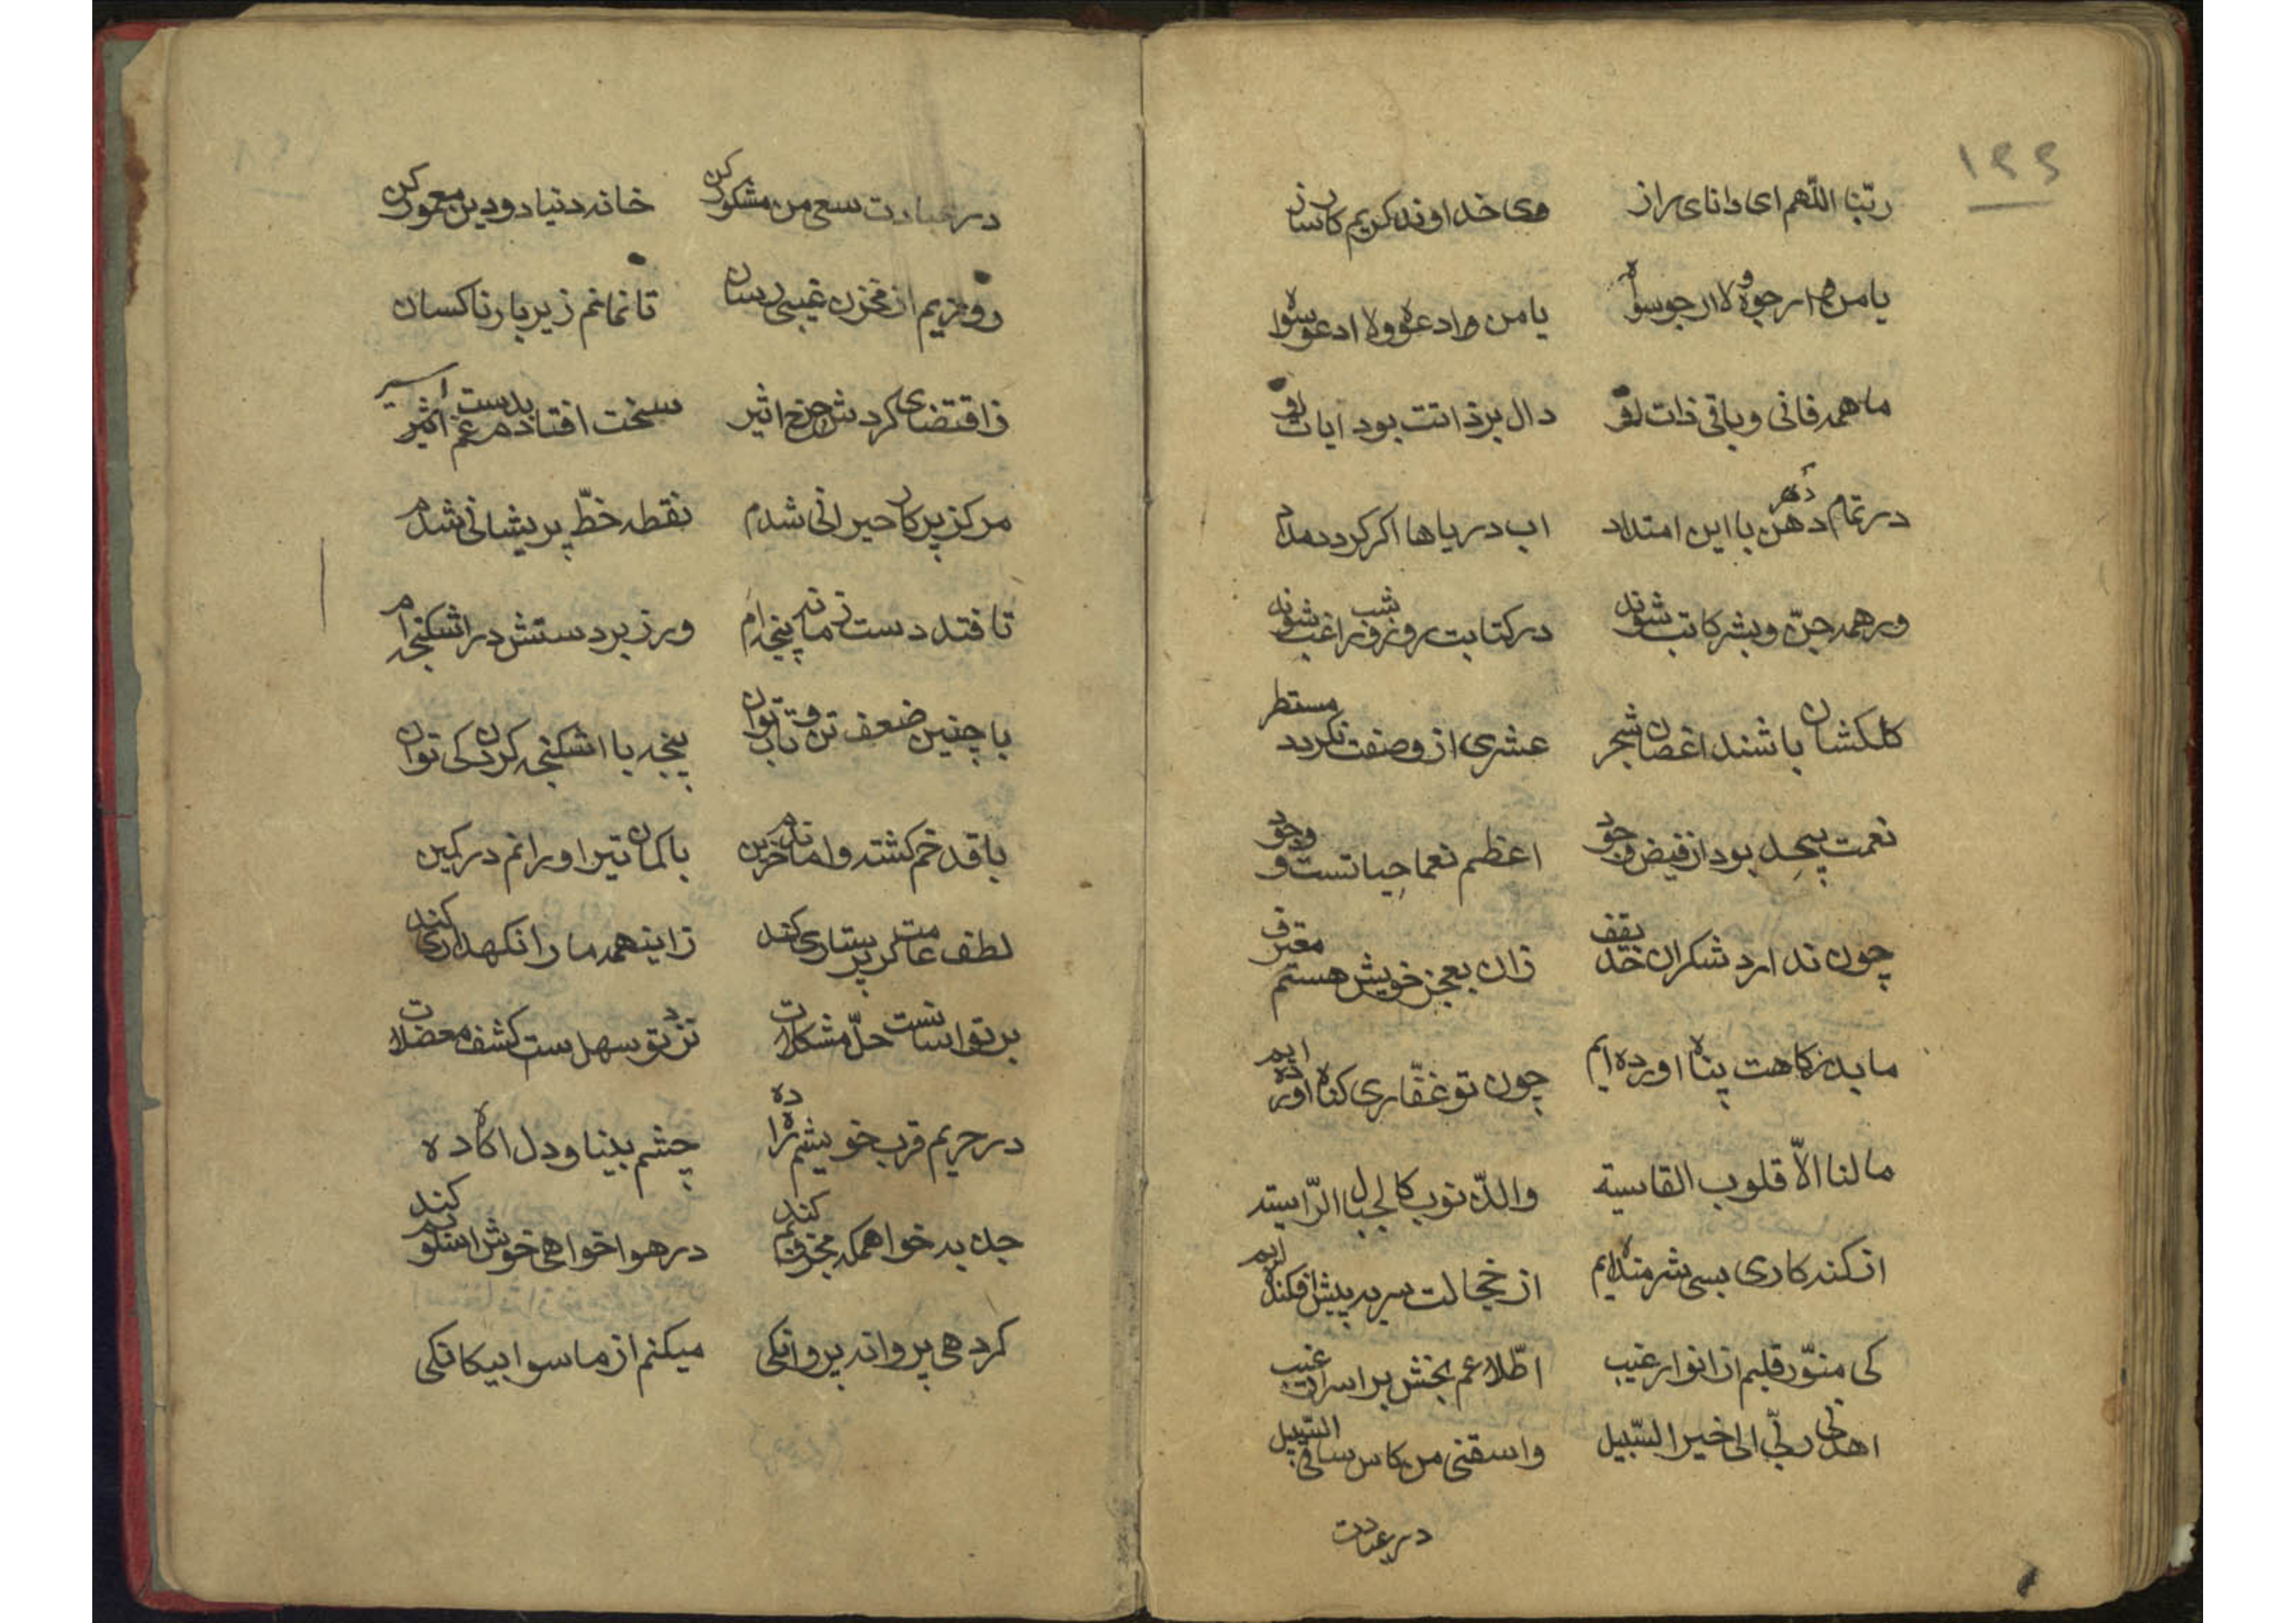 ۱۹۹
ربّنا اللّهم ای دانای راز وی خداوند کریم کارساز
یا من هو ارجوه و لا ارجو سواه یا من هو ادعوه ولا ادعو سواه
ما همه فانی و باقی ذات تو دال بر ذاتت بود ایات تو
در تمام دهر با این امتداد اب دریاها اکر کردد مداد
ور همه جنّ و بشر کاتب شوند در کتابت روز و شب راغب شوند
کلکشان باشند اغصان شجر عشری از وصفت نکردد مستطر
نعمت بیحد بود از فیض وجود اعظم نعما حیاتست و وجود
چون ندارد شکران حد یقف زان بعجز خویش هستم معترف
ما بدرکاهت پناه اورده ایم چون تو غفّاری کناه اورده ایم
ما لنا الّا قلوب القاسیة والذّنوب کالجبال الرّاسیته
از کنه کاری بسی شرمنده ایم از خجالت سر به پیش افکنده ایم
کی منوّر قلبم از انوار غیب اطّلاعم بخش بر اسرار غیب
اهدنی ربّی الی خیر السّبیل واسقنی من کاس ساقی السّبیل
در عبادت
در عبادت سعی من مشکور کن خانه دنیا و دین معمور کن
روزیم از مخزن غیبی رسان تا نمانم زیر بار ناکسان
زاقتضای کردش چرخ اثیر سخت افتادم بدست غم اسیر
مرکز پرکار حیرانی شدم نقطه خطّ پریشانی شدم
تا فتد دست زمانه پنجه ام ورزبر دستش در اشکنجه ام
با چنین ضعف تن و تاب و توان پنجه با اشکنجه کردن کی توان
با قد خم کشته وامانده حزین با کمان تیر اورانم در کمین
لطف عامت کر پرستاری کند زاینهمه ما را نکهداری کند
بر تو اسانست حلّ مشکلات نزد تو سهل ست کشف معضلات
در حریم قرب خویشم راه ده چشم بینا و دل اکاه ده
جذبه خواهم که مجذوبم کند در هواخواهی خوش اسلوبم کند
کر دهی پروانه پروانکی میکنم از ماسوا بیکانکی